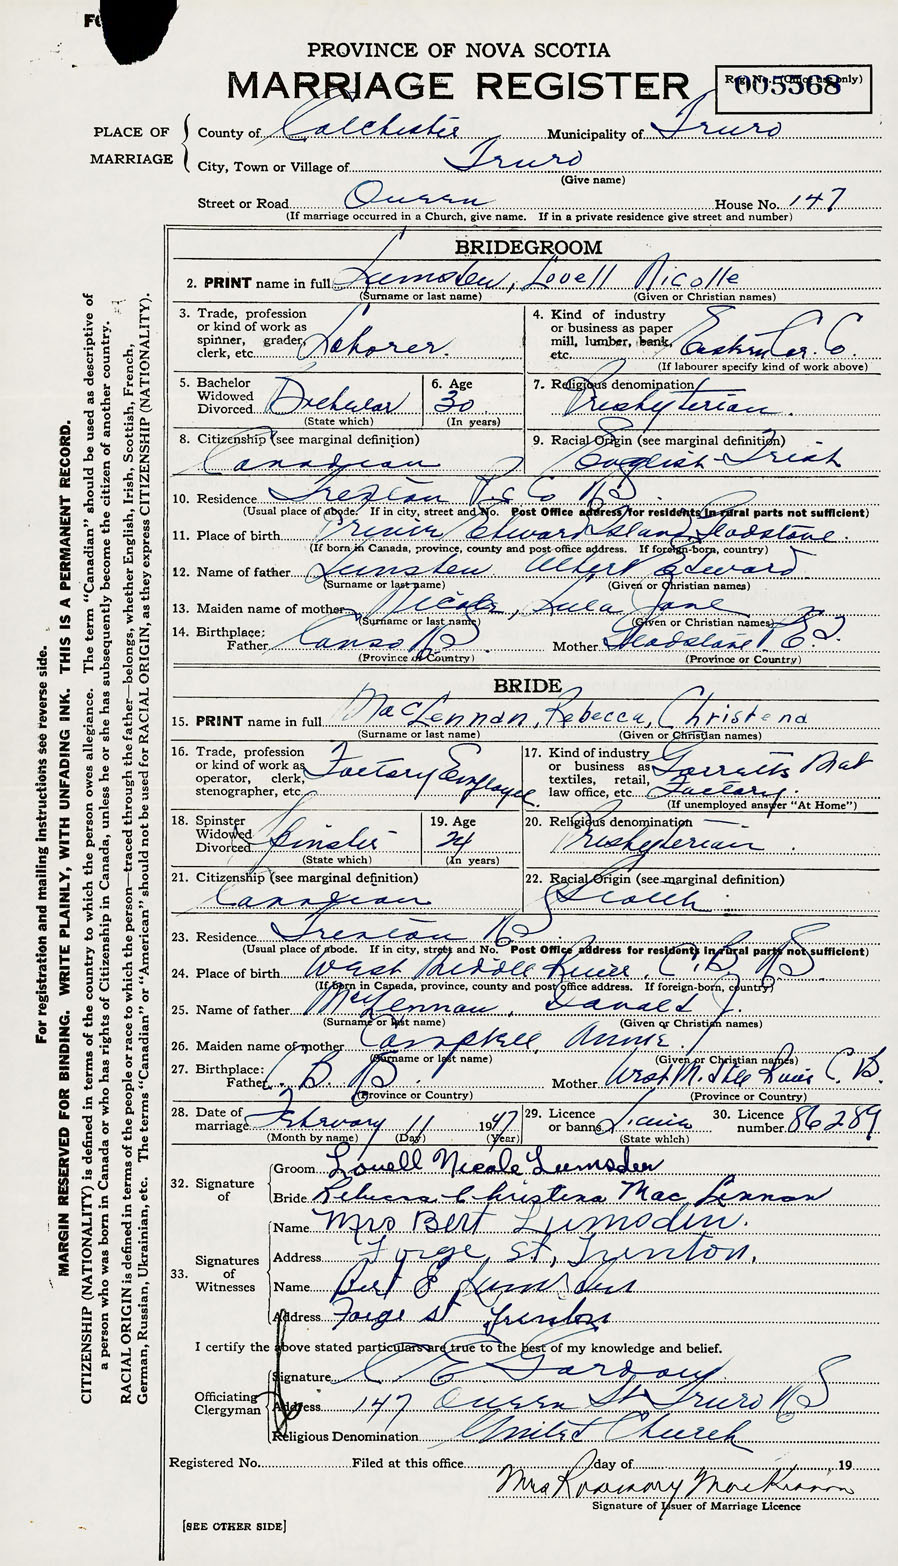 PROVINCE OF NOVA SCOTIA
MARRIAGE REGISTER
Reg. No. (Office use only)
005568
PLACE OF MARRIAGE
County of Colchester Municipality of Truro
City, Town or Village of Truro
(Give name)
Street or Road Queen House No. 147
(If marriage occurred in a Church, give name. If in a private residence give street and number)
BRIDEGROOM
2. PRINT name in full Lumsden, Lovell Nicolle
(Surname or last name) (Given or Christian names)
3. Trade, profession or kind of work as spinner, grader, clerk, etc. Laborer.
4. Kind of industry or business as paper mill, lumber, bank, etc. Eastern Car. Co.
(If labourer specify kind of work above)
5. Bachelor Widowed Divorced Bachelor
(State which)
6. Age 30
(In years)
7. Religious denomination Presbyterian.
8. Citizenship (see marginal definition) Canadian
9. Racial Origin (see marginal definition) English-Irish
10. Residence Trenton Pic Co NS
(Usual place of abode. If in city, street and No. Post Office address for residents in rural parts not sufficient)
11. Place of birth Prince Edward Island Gladstone.
(If born in Canada, province, county and post office address. If foreign-born, country)
12. Name of father Lumsden Albert Edward
(Surname or last name) (Given or Christian names)
13. Maiden name of mother Nicole, Lula Jane
(Surname or last name) (Given or Christian names)
14. Birthplace: Father Canso NS Mother Gladstone P.E.I.
(Province or Country) (Province or Country)
BRIDE
15. PRINT name in full MacLennan, Rebecca, Christena
(Surname or last name) (Given or Christian names)
16. Trade, profession or kind of work as operator, clerk, stenographer, etc. Factory Employee.
17. Kind of industry or business as textiles, retail, law office, etc. Factory.
(If unemployed answer "At Home")
18. Spinster Widowed Divorced Spinster
(State which)
19. Age 24
(In years)
20. Religious denomination Presbyterian.
21. Citizenship (see marginal definition) Canadian
22. Racial Origin (see marginal definition) Scotch.
23. Residence Trenton NS
(Usual place of abode. If in city, street and No. Post Office address for residents in rural parts not sufficient)
24. Place of birth West Middle River. C.B. NS
(If born in Canada, province, county and post office address. If foreign-born, country)
25. Name of father McLennan, Donald J.
(Surname or last name) (Given or Christian names)
26. Maiden name of mother Campbell, Annie.
(Surname or last name) (Given or Christian names)
27. Birthplace: Father C.B. NS. Mother West Middle River C.B.
(Province or Country) (Province or Country)
28. Date of marriage February 11 1947
(Month by name) (Day) (Year)
29. Licence or banns
(State which)
30. Licence number 86289
32. Signature of
Groom Lovell Nicole Lumsden
Bride Rebecca Christena MacLennan
33. Signatures of Witnesses
Name Mrs Bert Lumsden.
Address Forge St, Trenton,
Name Bert E Lumsden
Address Forge St Trenton
I certify the above stated particulars are true to the best of my knowledge and belief.
Officiating Clergyman
Signature C E Gordon
Address 147 Queen St Truro NS
Religious Denomination United Church
Registered No. Filed at this office day of 19
Mrs Rosemary MacKinnon
Signature of Issuer of Marriage Licence
[SEE OTHER SIDE]
For registration and mailing instructions see reverse side.
MARGIN RESERVED FOR BINDING. WRITE PLAINLY, WITH UNFADING INK. THIS IS A PERMANENT RECORD.
CITIZENSHIP (NATIONALITY) is defined in terms of the country to which the person owes allegiance. The term "Canadian" should be used as descriptive of
a person who was born in Canada or who has rights of Citizenship in Canada, unless he or she has subsequently become the citizen of another country.
RACIAL ORIGIN is defined in terms of the people or race to which the person—traced through the father—belongs, whether English, Irish, Scottish, French,
German, Russian, Ukrainian, etc. The terms "Canadian" or "American" should not be used for RACIAL ORIGIN, as they express CITIZENSHIP (NATIONALITY).